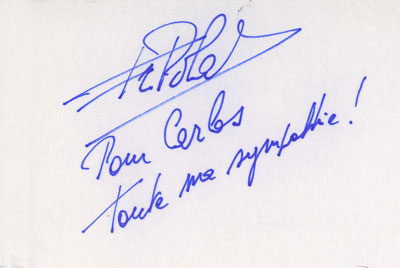 Pour Carlos
toute ma sympathie !